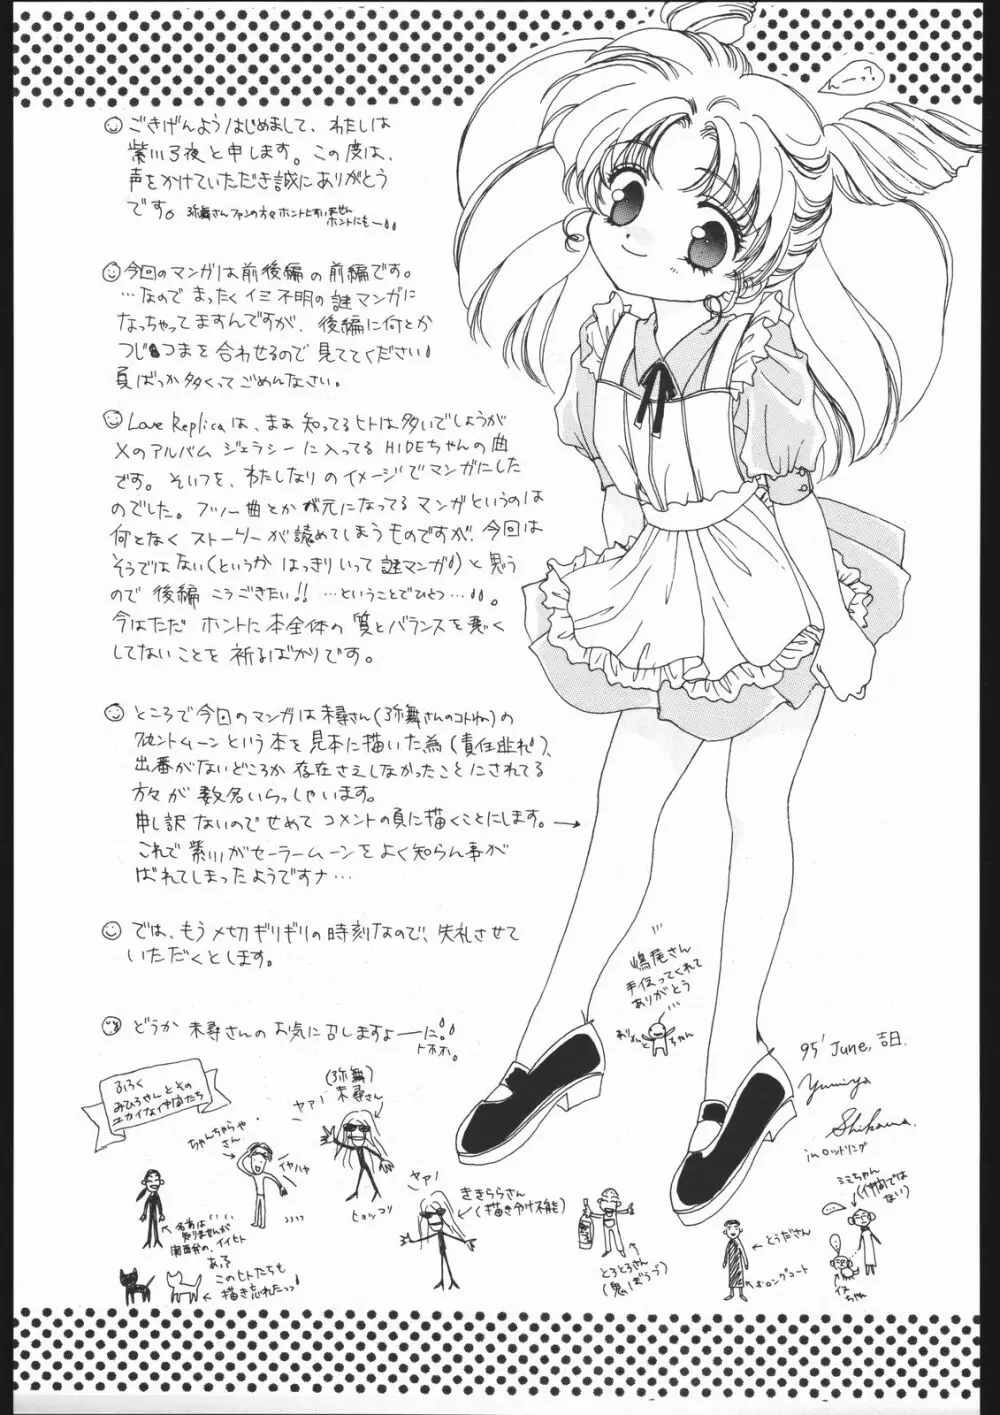 んーっ?
ごきげんようはじめまして、わたしは
紫川弓夜と申します。この度は、
声をかけていただき誠にありがとう
です。弥舞さんファンの方々ホントにすいません
ホントにもー
今回のマンガは前後編の前編です。
…なので まったくイミ不明の謎マンガに
なっちゃってますんですが、後編に何とか
つじつまを合わせるので見ててください!
頁ばっか多くってごめんなさい。
Love Replicaは、まぁ知ってるヒトは多いでしょうが
Xのアルバム ジェラシーに入ってるHIDEちゃんの曲
です。そいつを、わたしなりのイメージでマンガにした
のでした。フツー曲とかが元になってるマンガというのは
何となくストーリーが読めてしまうものですが、今回は
そうではない(というか はっきりいって謎マンガ!)と思う
ので後編こうごきたい!! …ということでひとつ…。
今はただ ホントに本全体の質とバランスを悪く
してないことを祈るばかりです。
ところで今回のマンガは未尋さん(弥舞さんのコトね)の
という本を見本に描いた為(責任
出番がないどころか存在さえしなかったことにされてる
方々が数名いらっしゃいます。
申し訳ないのでせめてコメントの頁に描くことにします。→
これで紫川がセーラームーンをよく知らん事が
ばれてしまったようですナ…
では、もう〆切ギリギリの時刻なので、失礼させて
いただくとします。
どうか未尋さんのお気に召しますよーに。
トホホ。
嶋尾さん
手伝ってくれて
ありがとう
ちゃん
95' June, 吉日.
Yumiya
Shikawa.
in ロッドリング
ふろく
みひろさんとその
ユカイな仲間たち
ちゃんちゃらや
さん
イヤハヤ
(弥舞)
未尋さん
ヤァ!
ヒョッコリ
ヤァ!
きさららさん
(描き分け不能)
名前は
知りませんが
関西発の、イイヒト
ああっ
このヒトたちも
描き忘れたっっ!
とろとろさん
(鬼ぼうず)
とうださん
ロングコート
ミミちゃん
(仲間では
ない)